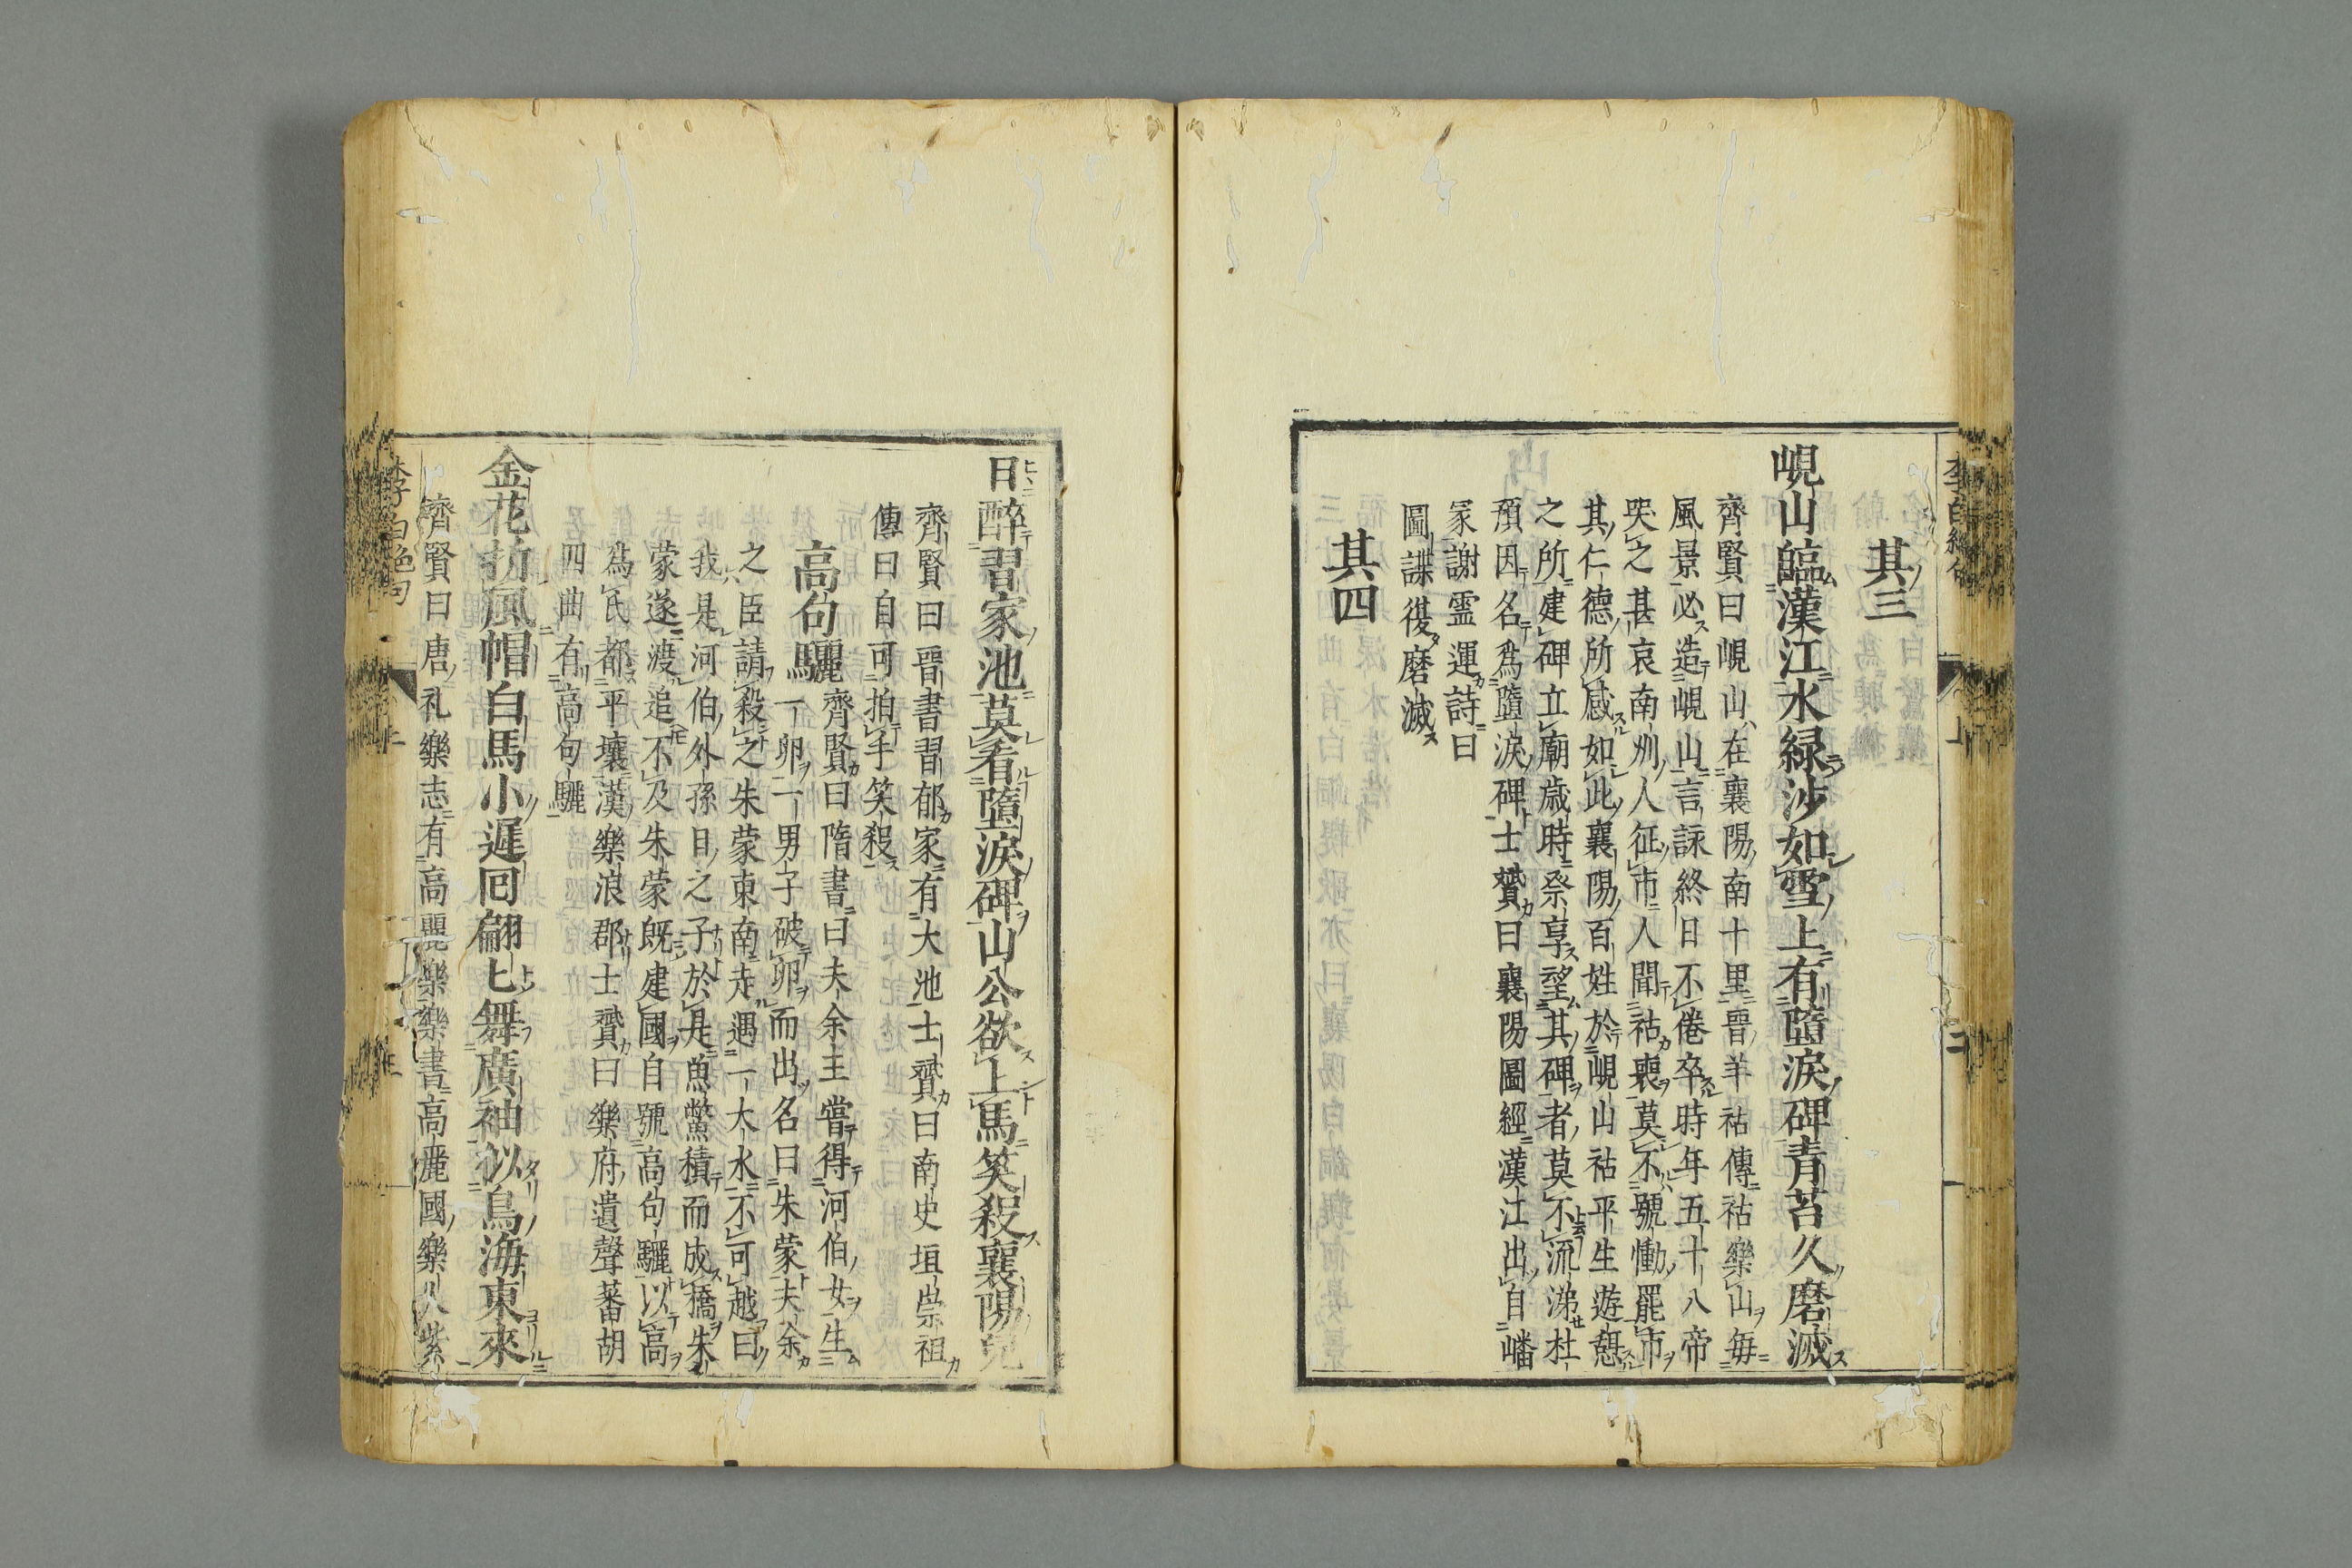 李白絶句
上
二
其三
峴山臨漢江水緑沙如雪上有墮淚碑青苔久磨滅
齊賢曰峴山在襄陽南十里晉羊祜傳祜樂山毎
風景必造峴山言詠終日不倦卒時年五十八帝
哭之甚哀南州人征市人聞祜喪莫不號慟罷市
其仁德所感如此襄陽百姓於峴山祜平生遊憩
之所建碑立廟歳時祭享望其碑者莫不流涕杜
預因名爲墮淚碑士贇曰襄陽圖經漢江出自嶓
冡謝霊運詩曰
圖諜復磨滅
其四
日醉習家池莫看墮淚碑山公欲上馬笑殺襄陽兒
齊賢曰晉書習郁家有大池士贇曰南史垣崇祖
傳曰自可拍手笑殺
高句驪 齊賢曰隋書曰夫余主嘗得河伯女生
一卵一男子破卵而出名曰朱蒙夫余
之臣請殺之朱蒙東南走遇一大水不可越曰
我是河伯外孫日之子於是魚鱉積而成橋朱
蒙遂渡追不及朱蒙既建國自號高句驪以高
爲氏都平壤漢樂浪郡士贇曰樂府遺聲蕃胡
四曲有高句驪
金花折風帽白馬小遲囘翩七舞廣袖似鳥海東來
齊賢曰唐礼樂志有高麗樂樂書高麗國樂八紫
李白絶句
上
三